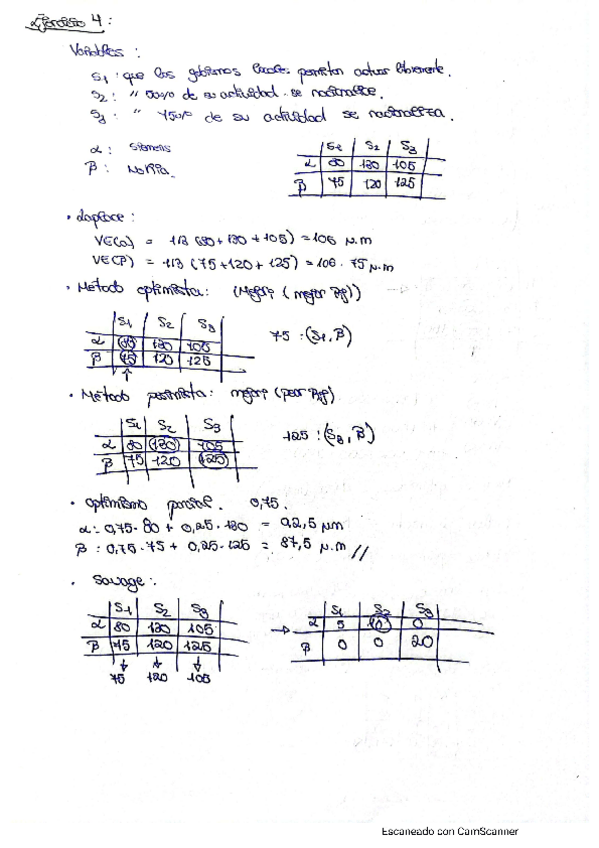 Ejercicio 4:
Variables:
S1: que los gobiernos locales permitan actuar libremente.
S2: " 50% de su actividad se nacionalice.
S3: " 75% de su actividad se nacionaliza.
α: Siemens
β: Nokia.
S1 S2 S3
α 80 130 105
β 75 120 125
• Laplace:
VE(α) = 1/3 (80 + 130 + 105) = 105 u.m
VE(β) = 1/3 (75 + 120 + 125) = 106.75 u.m
• Método optimista: (Mejor; (mejor
S1 S2 S3
α 130 105
β 75 120 125
75 : (S1, β)
• Método pesimista: mejor; (peor
S1 S2 S3
α 80 130 105
β 75 120 125
125 : (S3, β)
• Optimismo parcial. 0,75.
α: 0,75 · 80 + 0,25 · 130 = 92,5 um
β: 0,75 · 75 + 0,25 · 125 = 87,5 u.m //
• Savage:
S1 S2 S3
α 80 130 105
β 75 120 125
↓ ↓ ↓
75 120 105
→
S1 S2 S3
α 5 10 0
β 0 0 20
Escaneado con CamScanner